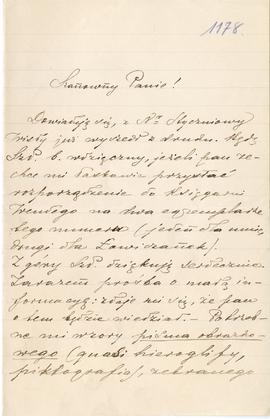 1178.
Szanowny Panie!
Dowiaduję się, z Nr Styczniowy
Wisły już wyszedł z druku. Będę
SzP. b. wdzięczny, jeżeli pan ze-
chce mi łaskawie przysłać
rozporządzenie do Księgarni
Wendego na dwa egzemplarze
tego numeru (jeden dla mnie,
drugi dla Zawiszanek).
Z góry SzP. dziękuję serdecznie.
Zarazem prośba o małą in-
formacyę: zdaje mi się, że pan
o tem będzie wiedział. — Potrzeb-
ne mi wzory pisma obrazko-
wego (quasi hieroglify,
piktografia), zebranego